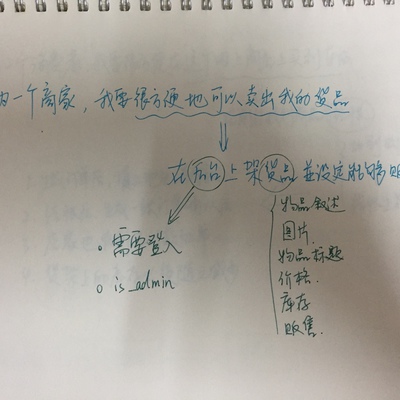 一个商家，我要很方便地可以卖出我的货品
在后台上架货品並设定
需要登入
is_admin
物品叙述
图片.
物品标题
价格.
库存
贩售.